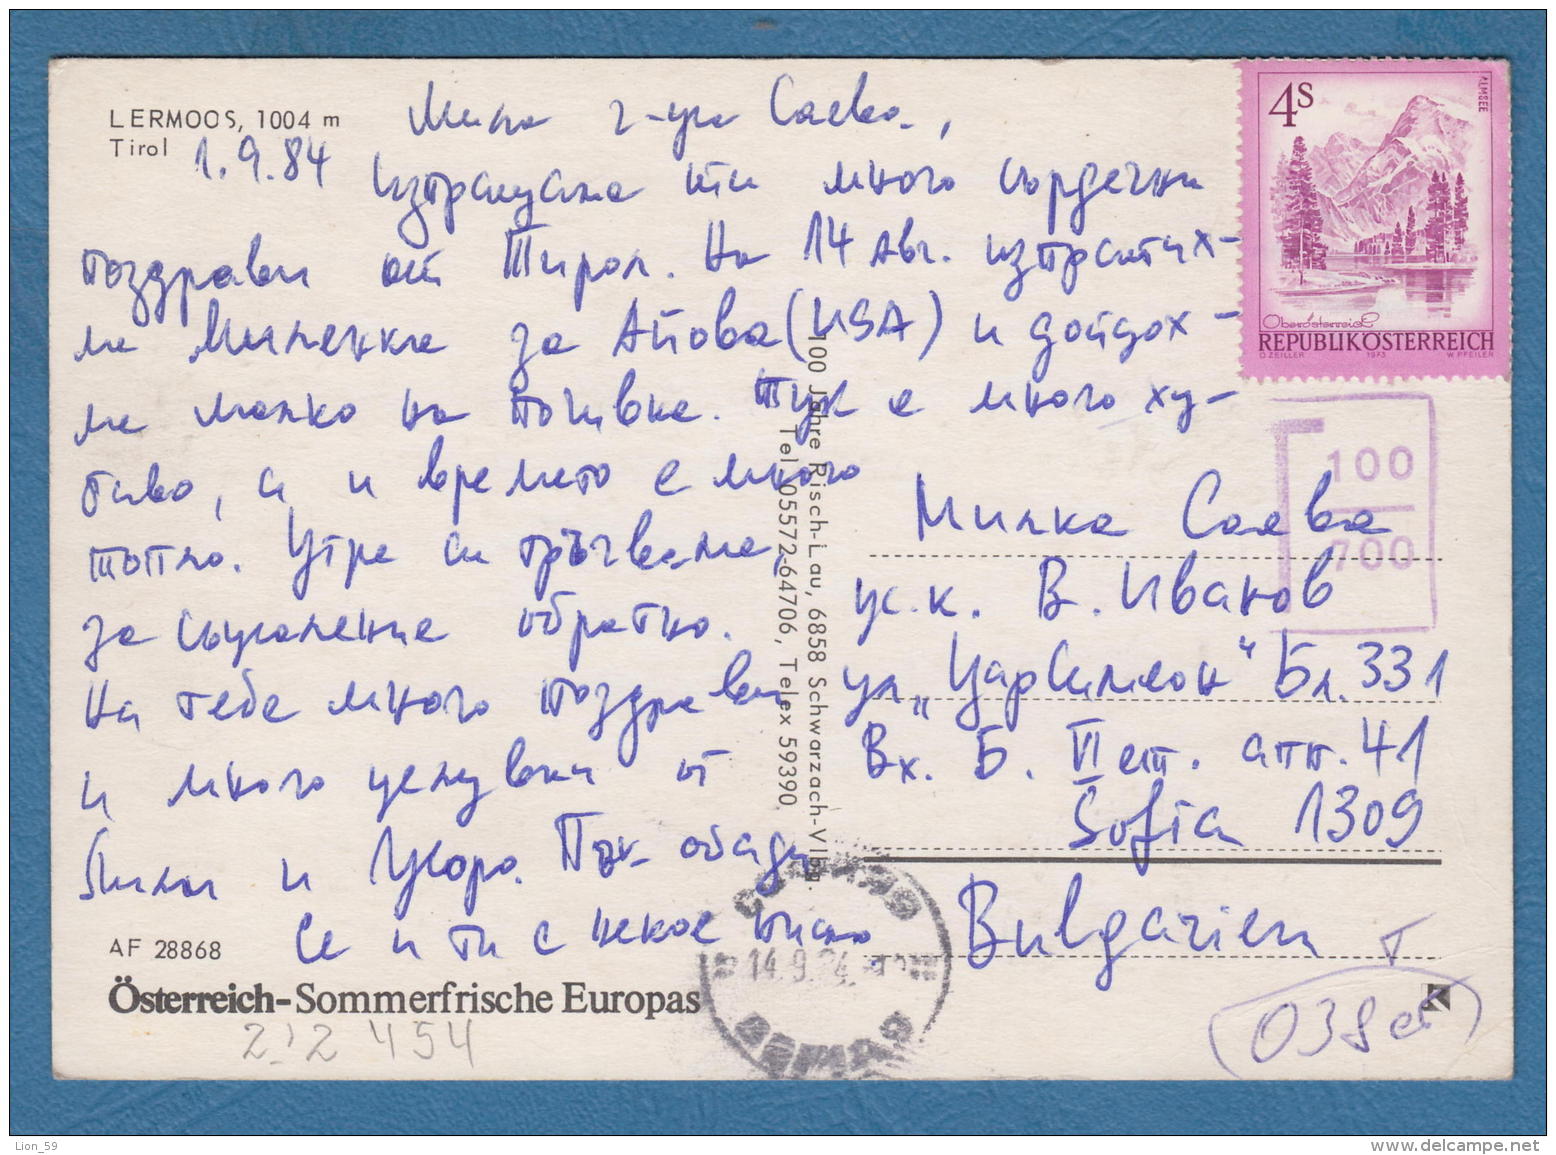 LERMOOS, 1004 m
Tirol
1.9.84
Мила г-жа Саева,
изпращаме ти много сърдечни
поздрави от Тирол. На 14 авг. изпратих-
ме Миленка за Айова (USA) и дойдох-
ме малко на почивка. Тук е много ху-
баво, а и времето е много
топло. Утре си тръгваме
за съжаление обратно.
На тебе много поздрави
и много целувки от
и
Пък обади
се и ти с некое писмо.
AF 28868
Österreich-Sommerfrische Europas
212 454
100 Jahre Risch-Lau, 6858 Schwarzach-Vlbg.
Tel. 05572-64706, Telex 59390
4S
ALMSEE
Oberösterreich
REPUBLIK ÖSTERREICH
O.ZEILLER 1973 W.PFEILER
100
700
Милка Саева
ж.к. В. Иванов
ул „Цар Симеон“ Бл. 331
Вх. Б. VI ет. ап. 41
Sofia 1309
Bulgarien
СОФИЯ
14.9.84
T
Lion_59
www.delcampe.net